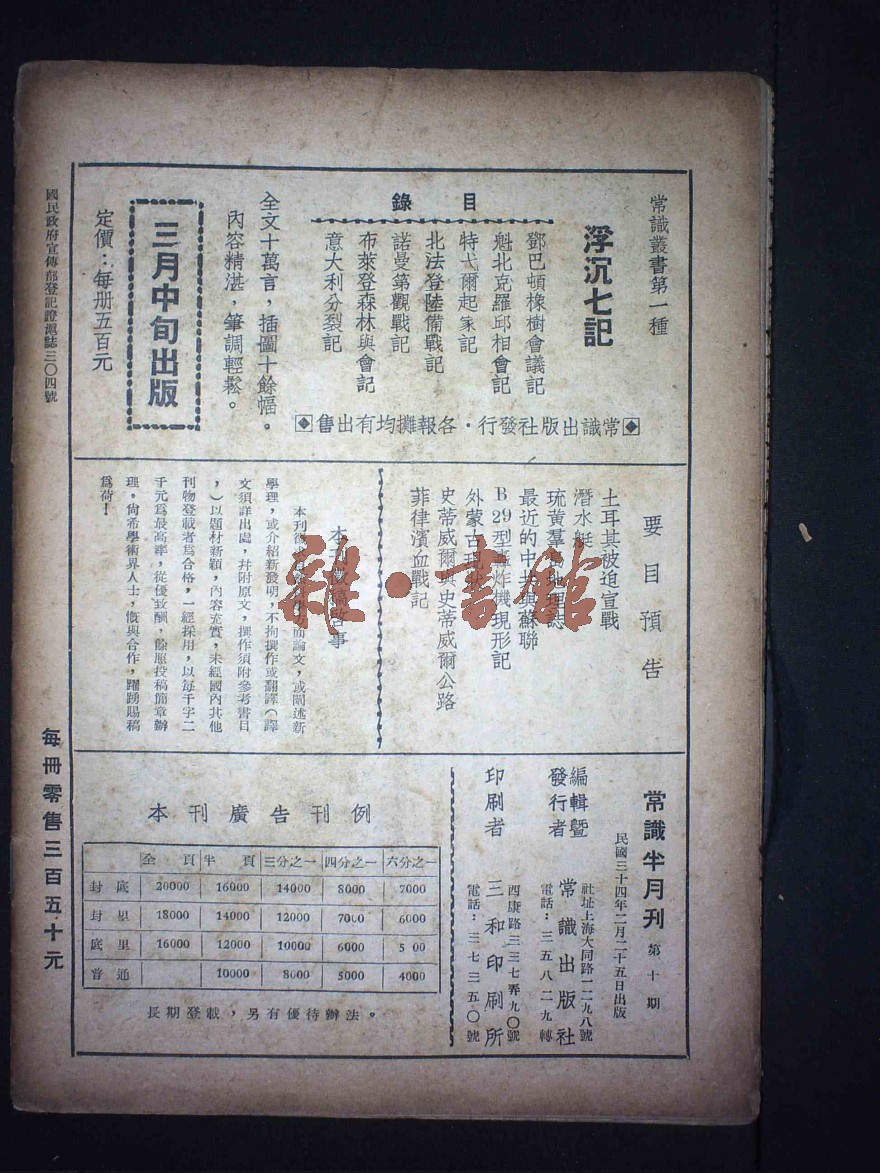 常識叢書第一種
浮沉七記
目錄
鄧巴頓橡樹會議記
魁北克羅邱相會記
特弋爾起家記
北法登陸備戰記
諾曼第觀戰記
布萊登森林與會記
意大利分裂記
全文十萬言，插圖十餘幅。
內容精湛，筆調輕鬆。
三月中旬出版
定價：每册五百元
常識出版社發行·各報攤均有出售
國民政府宣傳部登記證滬誌三〇四號
要目預告
土耳其被迫宣戰
潛水艇
琉黃羣島地理誌
最近的中共與蘇聯
B 29型轟炸機現形記
外蒙古現狀
史蒂威爾與史蒂威爾公路
菲律濱血戰記
本刊徵稿啓事
本刊徵求
方面論文，或闡述新
學理，或介紹新發明，不拘撰作或翻譯（譯
文須詳出處，幷附原文，撰作須附參考書目
，）以題材新穎，內容充實，未經國內其他
刊物登載者爲合格，一經採用，以每千字二
千元爲最高率，從優致酬，餘照投稿簡章辦
理。尙希學術界人士，慨與合作，踴躍賜稿
爲荷！
常識半月刊 第十期
民國三十四年二月二十五日出版
編輯曁發行者 常識出版社
社址上海大同路一二九八號
電話：三五八二九轉
印刷者 三和印刷所
西康路三三七弄九〇號
電話：三七三五〇號
本刊廣告刊例
全頁 半頁 三分之一 四分之一 六分之一
封底 20000 16000 14000 8000 7000
封里 18000 14000 12000 7000 6000
底里 16000 12000 10000 6000 5 00
普通 10000 8000 5000 4000
長期登載，另有優待辦法。
每冊零售三百五十元
雜·書館